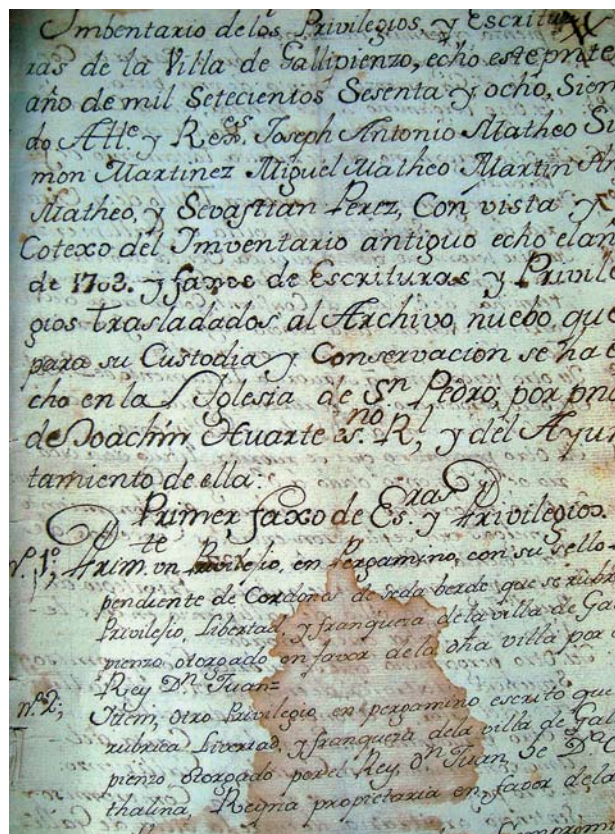 Imbentario de los Privilegios, y Escritu
ras de la Villa de Gallipienzo, echo este pnte
año de mil Setecientos Sesenta y ocho, Sien
do Alle. y Rexes. Joseph Antonio Matheo Si
mon Martinez Miguel Matheo Martin
Matheo, y Sevastian Perez, Con vista y
Cotexo del Imventario antiguo echo el an
de 1703. y faxos de Escrituras y Privile
gios trasladados al Archivo nuebo que
para su Custodia y Conservacion se ha e
cho en la Yglesia de Sn. Pedro, por
de Joachin Huarte esno. Rl, y del Ayun
tamiento de ella:
Primer faxo de Esras. y Privilegios
nº. 1º; Primte. un Privilejio, en Pergamino, con su sello
pendiente de Cordones de seda berde que se rubri
Privilejio, Libertad, y franqueza de la villa de Ga
pienzo otorgado en favor de la dha villa por
Rey Dn. Juan=
nº. 2; Ittem, otro Privilegio en pergamino escrito que
rubrica Livertad, y franqueza de la villa de Gal
pienzo otorgado por el Rey, Dn. Juan, De Da. C
thalina, Reyna propietaria en favor de la